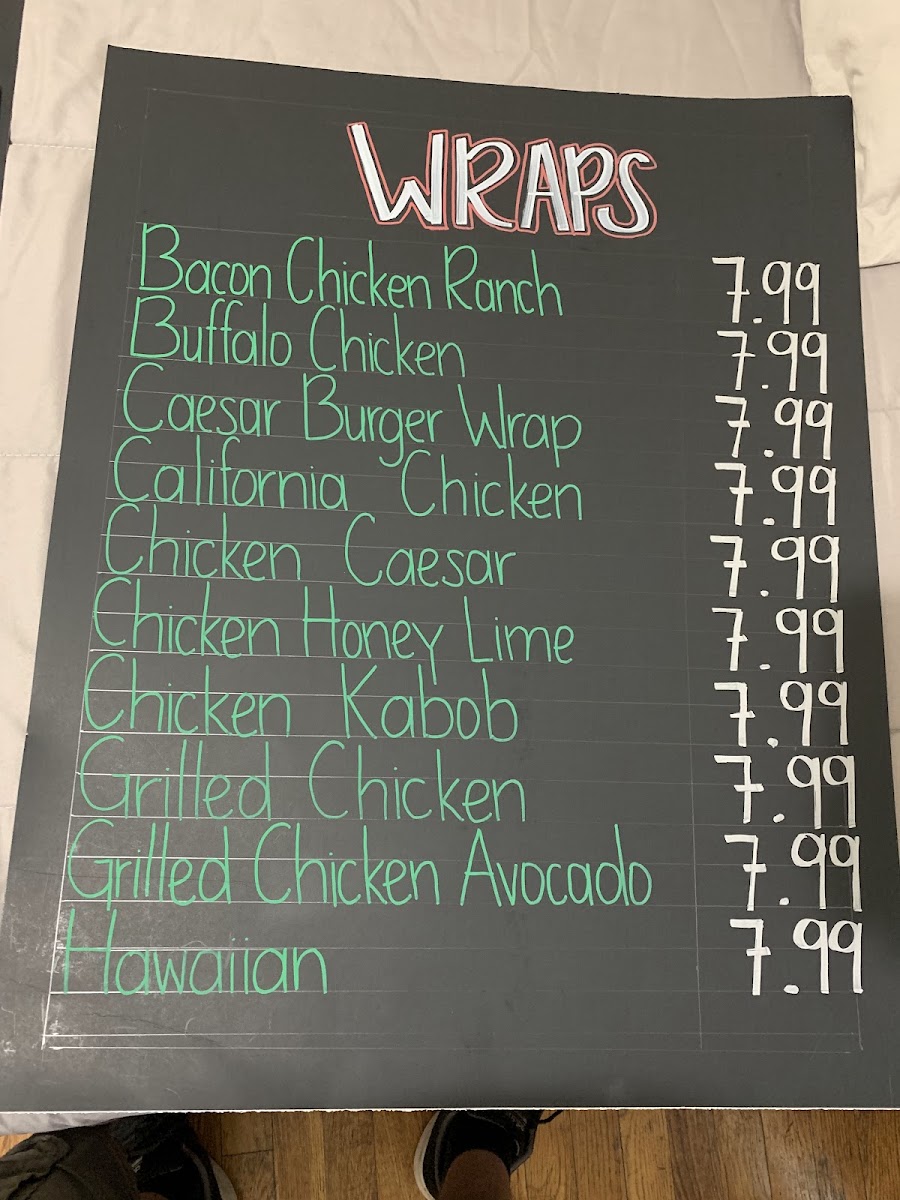 WRAPS
Bacon Chicken Ranch 7.99
Buffalo Chicken 7.99
Caesar Burger Wrap 7.99
California Chicken 7.99
Chicken Caesar 7.99
Chicken Honey Lime 7.99
Chicken Kabob 7.99
Grilled Chicken 7.99
Grilled Chicken Avocado 7.99
Hawaiian 7.99